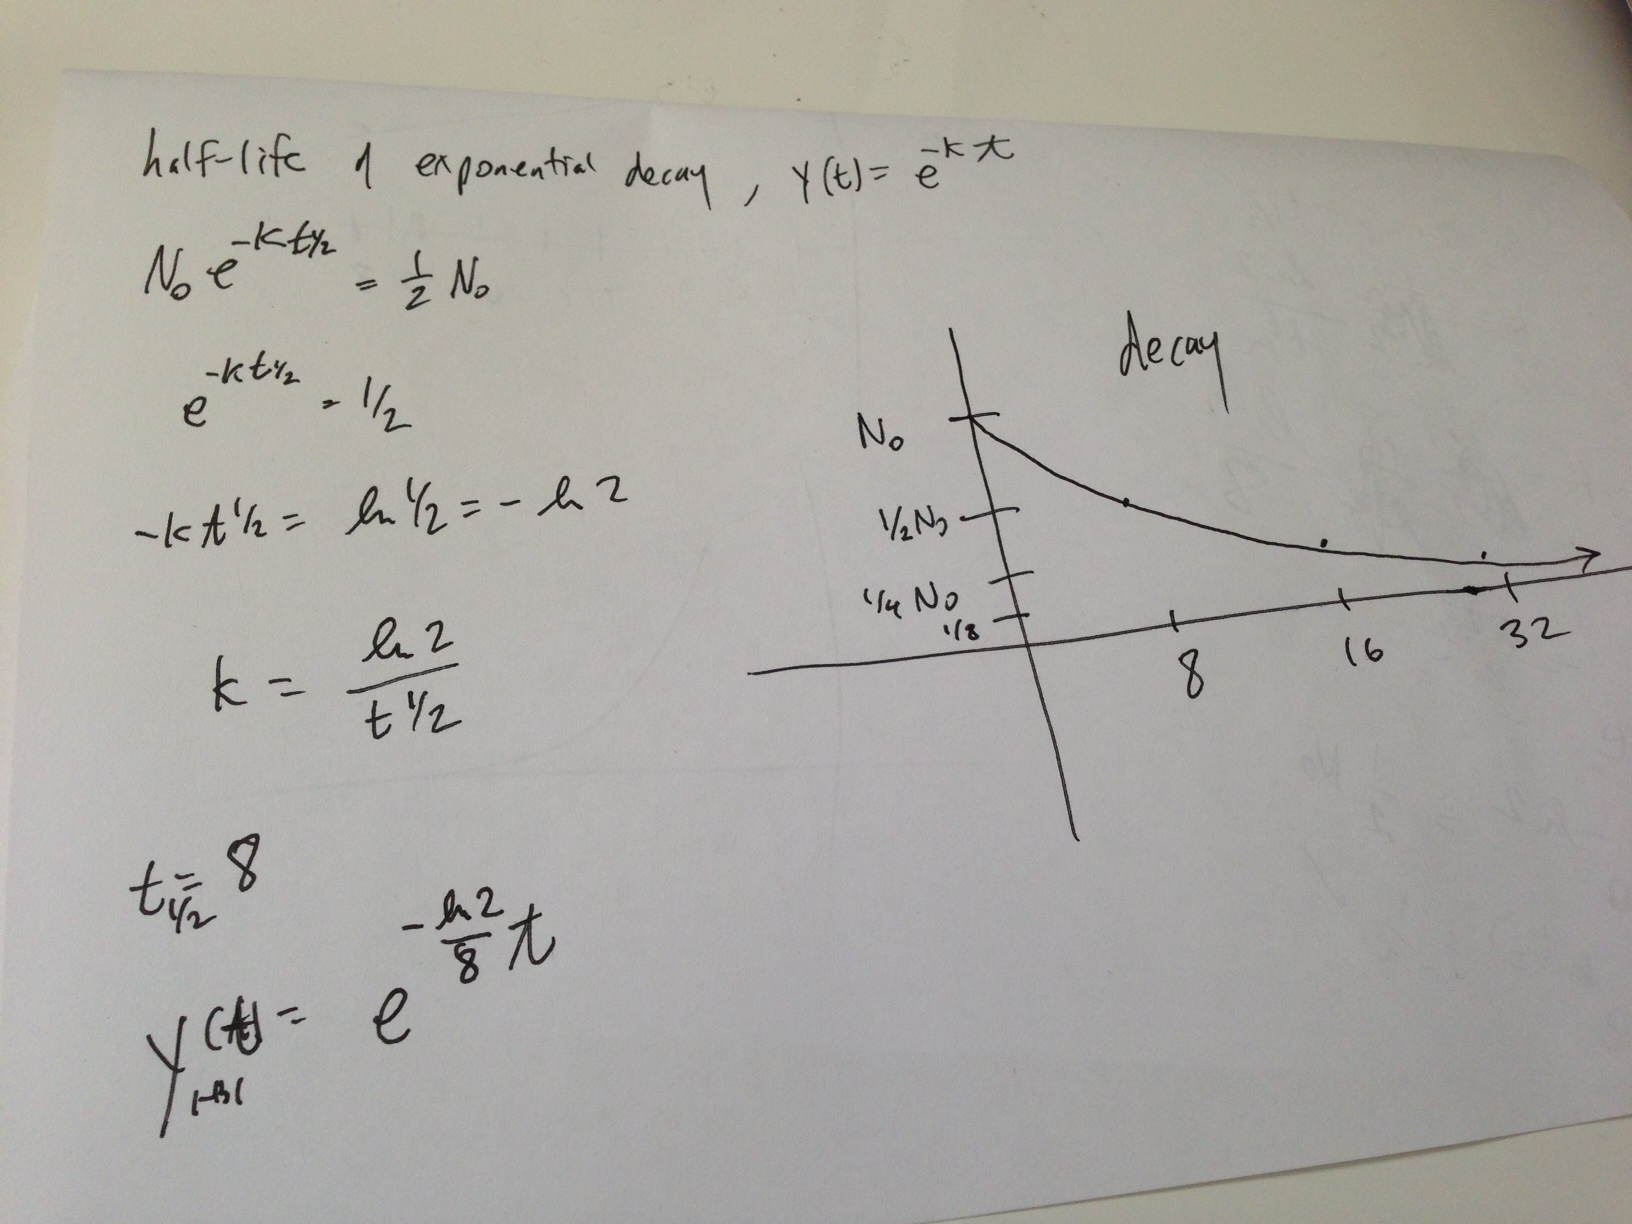 half-life of exponential decay, y(t) = e^-kt
N₀ e^-kt½ = 1/2 N₀
e^-kt½ = 1/2
-kt½ = ln ½ = - ln 2
k = ln 2 / t½
t½ = 8
y(t) = e^-(ln 2/8)t
I-131
decay
N₀
½N₀
¼ N₀
1/8
8 16 32